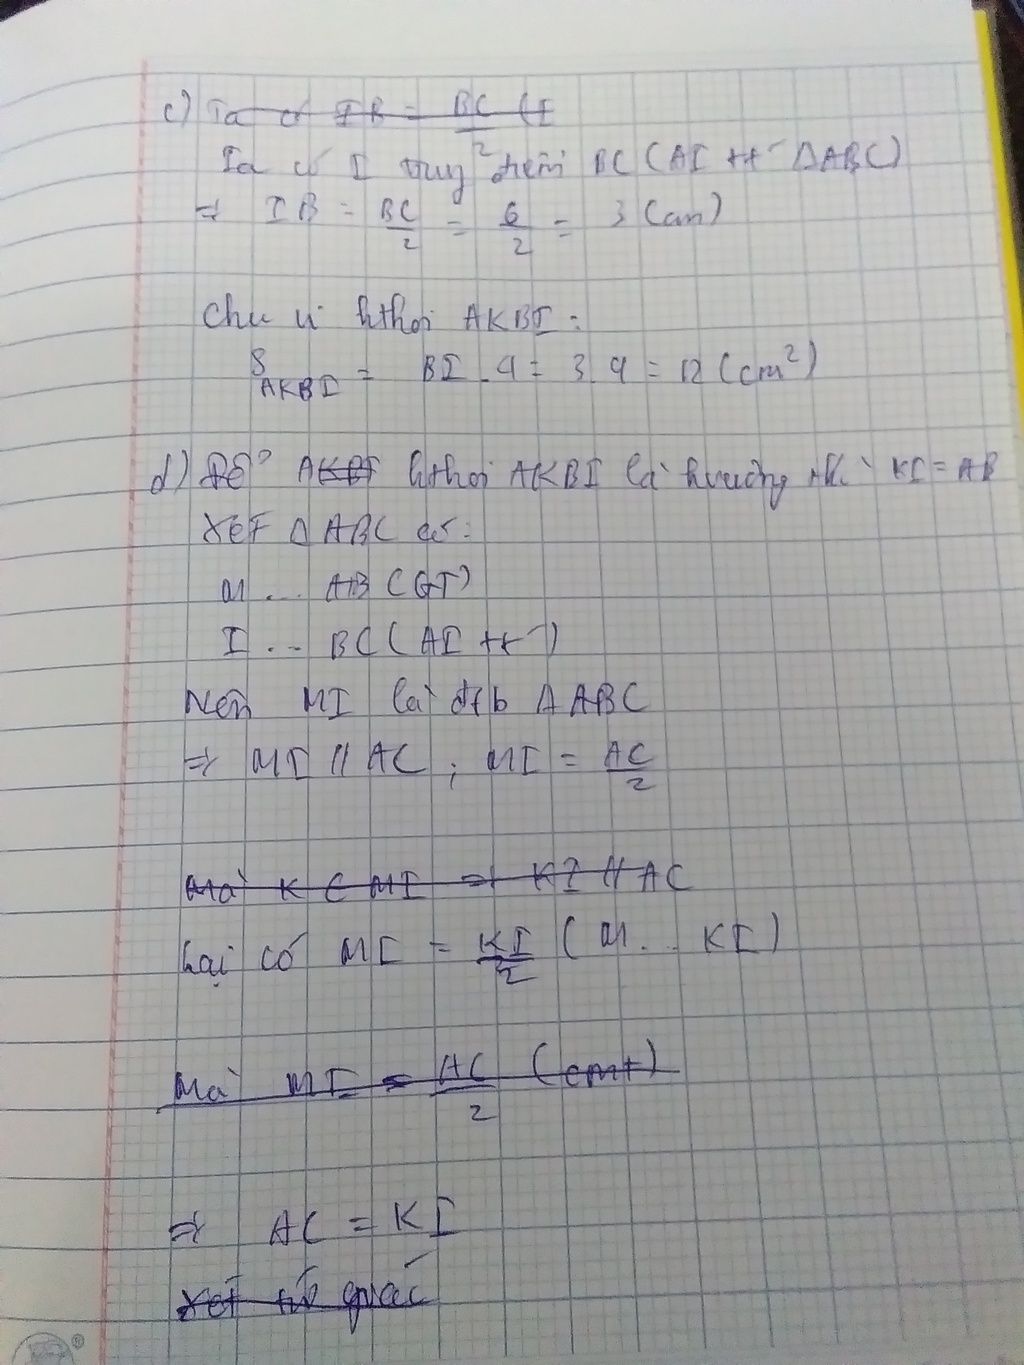 c) Ta có IB = BC/2 (I
Ta có I trung điểm BC (AI tt ΔABC)
=> IB = BC/2 = 6/2 = 3 (cm)
Chu vi hthoi AKBI:
S AKBI = BI . 4 = 3.4 = 12 (cm²)
d) Để AKBI hthoi AKBI là hvuông thì KI = AB
Xét Δ ABC có:
M ... AB (GT)
I ... BC (AI tt)
Nên MI là đtb ΔABC
=> MI // AC ; MI = AC/2
Mà K ∈ MI => KI // AC
Lại có MI = KI/2 (M ... KI)
Mà MI = AC/2 (cmt)
=> AC = KI
Xét tứ giác